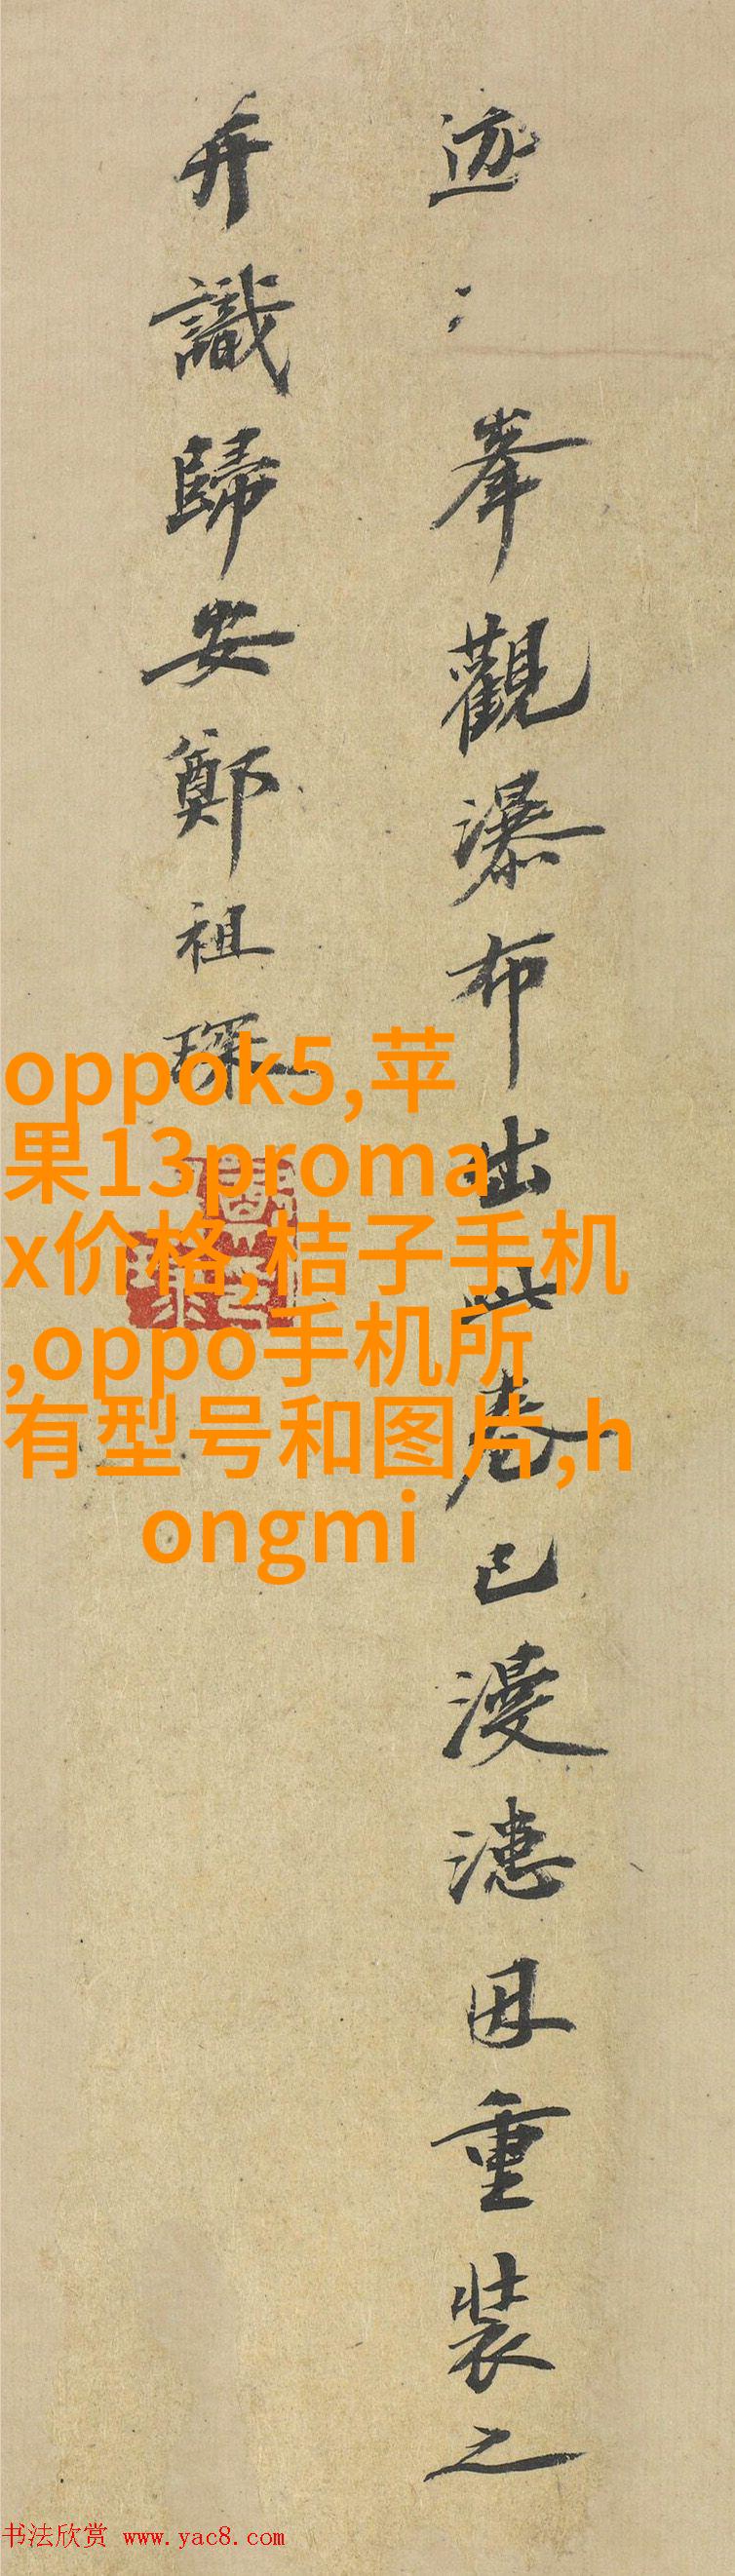 迹〻峯觀瀑布出此卷已漫漶因重裝之
并識歸安鄭祖琛
oppok5,苹
果13proma
x价格,桔子手机
,oppo手机所
有型号和图片,h
ongmi
书法欣赏 www.yac8.com